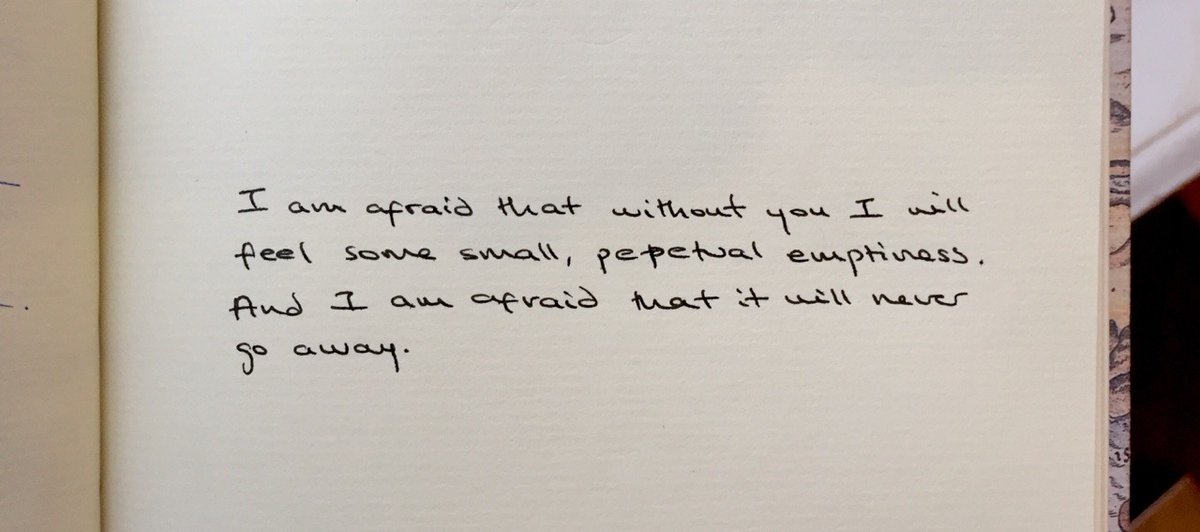 I am afraid that without you I will
feel some small, pepetual emptiness.
And I am afraid that it will never
go away.